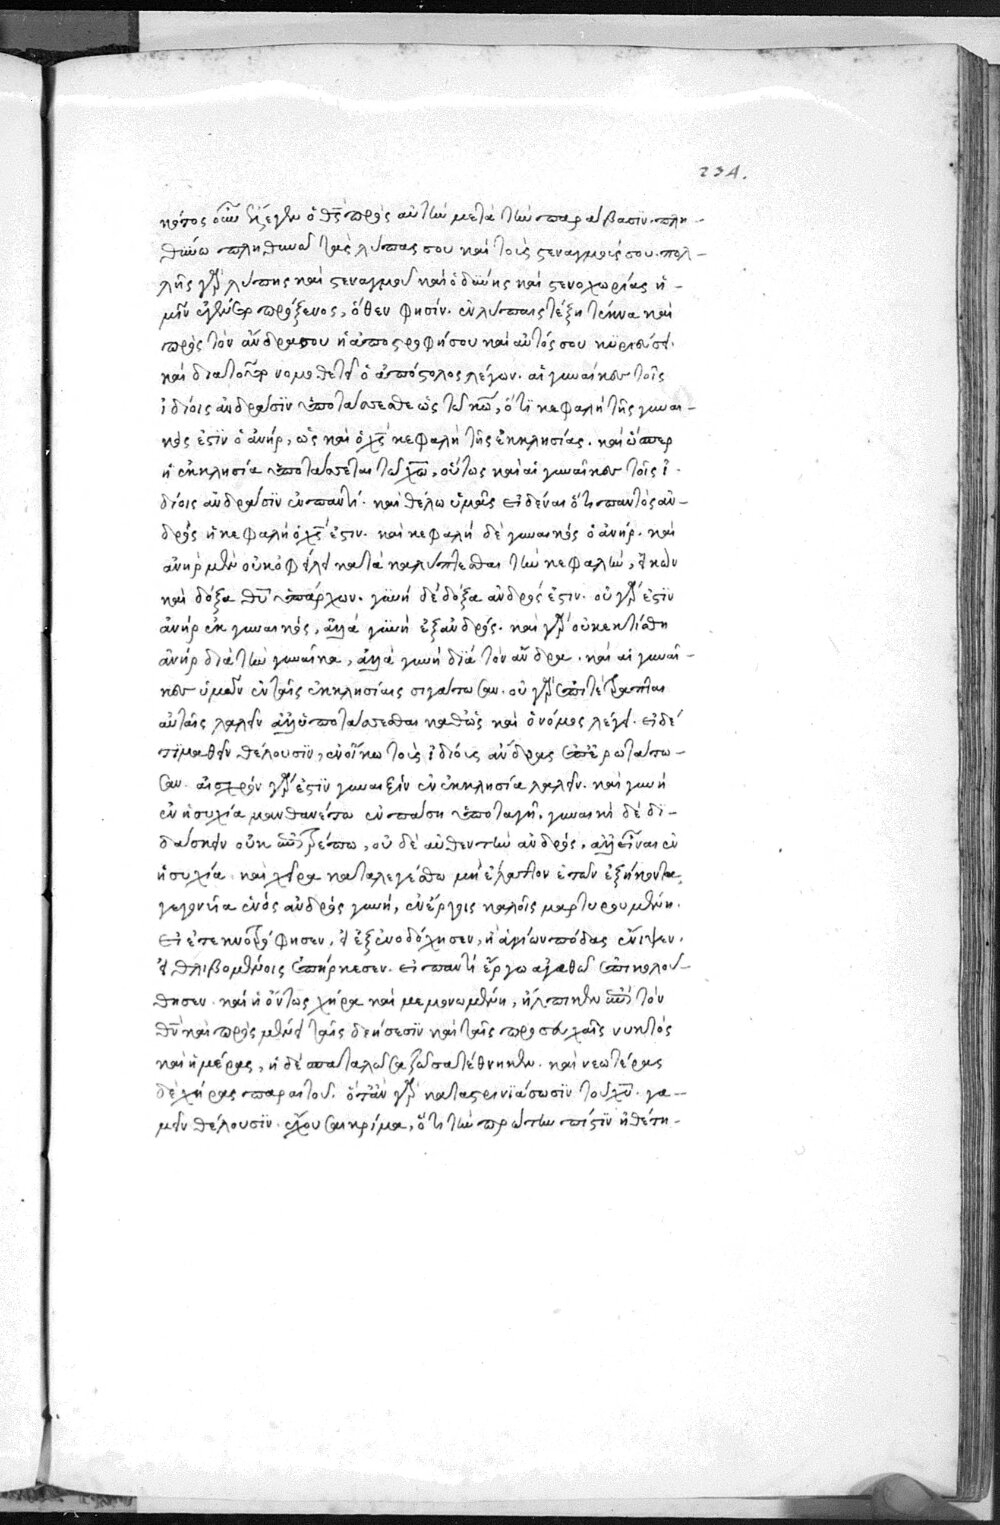 234.
κότος οὖν ἔλεγεν ὁ θς πρὸς αὐτὴν μετὰ τὴν παράβασιν. πλη-
θύνω πληθυνῶ τὰς λύπας σου καὶ τοὺς στεναγμούς σου. πολ-
λῆς γὰρ λύπης καὶ στεναγμοῦ καὶ ὀδύνης καὶ στενοχωρίας ἡ-
μῖν ἐγένετο πρόξενος, ὅθεν φησίν. ἐν λύπαις τέξη τέκνα καὶ
πρὸς τὸν ἄνδρα σου ἡ ἀποστροφή σου καὶ αὐτός σου κυριεύσει.
καὶ διὰ τοῦτο νομοθετεῖ ὁ ἀπόστολος λέγων. αἱ γυναῖκες τοῖς
ἰδίοις ἀνδράσιν ὑποτάσσεσθε ὡς τῷ κω, ὅτι κεφαλὴ τῆς γυναι-
κός ἐστιν ὁ ἀνήρ, ὡς καὶ ὁ χς κεφαλὴ τῆς ἐκκλησίας. καὶ ὥσπερ
ἡ ἐκκλησία ὑποτάσσεται τῷ χω, οὕτως καὶ αἱ γυναῖκες τοῖς ἰ-
δίοις ἀνδράσιν ἐν παντί. καὶ θέλω ὑμᾶς εἰδέναι ὅτι παντὸς ἀν-
δρὸς ἡ κεφαλὴ ὁ χς ἐστιν. καὶ κεφαλὴ δὲ γυναικὸς ὁ ἀνήρ. καὶ
ἀνὴρ μὲν οὐκ ὀφείλει κατακαλύπτεσθαι τὴν κεφαλήν, εἰκὼν
καὶ δόξα θυ ὑπάρχων. γυνὴ δὲ δόξα ἀνδρός ἐστιν. οὐ γάρ ἐστιν
ἀνὴρ ἐκ γυναικός, ἀλλὰ γυνὴ ἐξ ἀνδρός. καὶ γὰρ οὐκ ἐκτίσθη
ἀνὴρ διὰ τὴν γυναῖκα, ἀλλὰ γυνὴ διὰ τὸν ἄνδρα. καὶ αἱ γυναῖ-
κες ὑμῶν ἐν ταῖς ἐκκλησίαις σιγάτωσαν. οὐ γὰρ ἐπιτέτραπται
αὐταῖς λαλεῖν ἀλλ' ὑποτάσσεσθαι καθὼς καὶ ὁ νόμος λέγει. εἰ δέ
τι μαθεῖν θέλουσιν, ἐν οἴκω τοὺς ἰδίους ἄνδρας ἐπερωτάτω-
σαν. αἰσχρὸν γάρ ἐστιν γυναιξὶν ἐν ἐκκλησία λαλεῖν. καὶ γυνὴ
ἐν ἡσυχία μανθανέτω ἐν πάση ὑποταγῆ. γυναικὶ δὲ δι-
δάσκειν οὐκ ἐπιτρέπω, οὐδὲ αὐθεντεῖν ἀνδρός, ἀλλ' εἶναι ἐν
ἡσυχία. καὶ χήρα καταλεγέσθω μὴ ἔλαττον ἐτῶν ἑξήκοντα,
γεγονεῖα ἑνὸς ἀνδρὸς γυνή, ἐν ἔργοις καλοῖς μαρτυρουμένη.
εἰ ἐτεκνοτρόφησεν, εἰ ἐξενοδόχησεν, εἰ ἁγίων πόδας ἔνιψεν.
εἰ θλιβομένοις ἐπήρκεσεν. εἰ παντὶ ἔργω ἀγαθῷ ἐπηκολού-
θησεν. καὶ ἡ ὄντως χήρα καὶ μεμονωμένη, ἤλπικεν ἐπὶ τὸν
θν καὶ προσμένει ταῖς δεήσεσιν καὶ ταῖς προσευχαῖς νυκτὸς
καὶ ἡμέρας, ἡ δὲ σπαταλῶσα ζῶσα τέθνηκεν. καὶ νεωτέρας
δὲ χήρας παραιτοῦ. ὅταν γὰρ καταστρηνιάσωσιν τοῦ χυ. γα-
μεῖν θέλουσιν. ἔχουσαι κρίμα, ὅτι τὴν πρώτην πίστιν ἠθέτη-